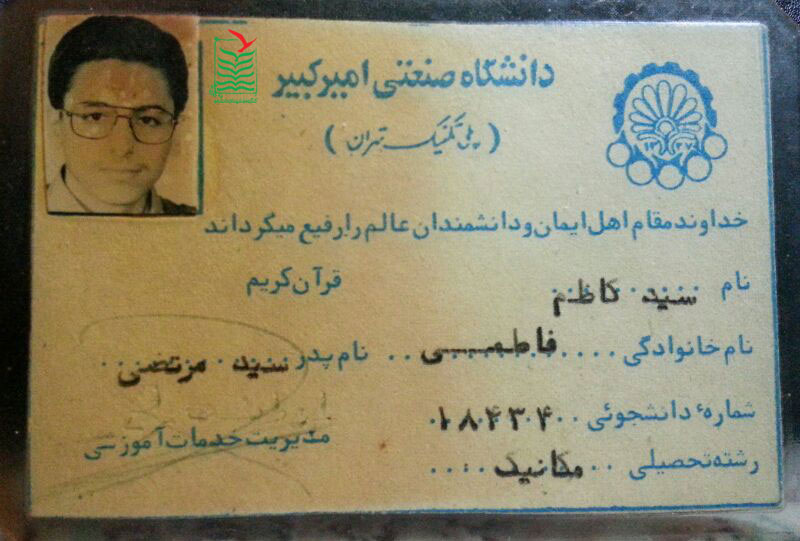 دانشگاه صنعتی امیرکبیر
(پلی تکنیک تهران)
۱۳۳۷
خداوند مقام اهل ایمان و دانشمندان عالم را رفیع میگرداند
قرآن کریم
نام سید کاظم
نام خانوادگی فاطمی نام پدر سید مرتضی
شمارهٔ دانشجوئی ۱۸۴۳۴۰۰
رشته تحصیلی مکانیک
مدیریت خدمات آموزشی